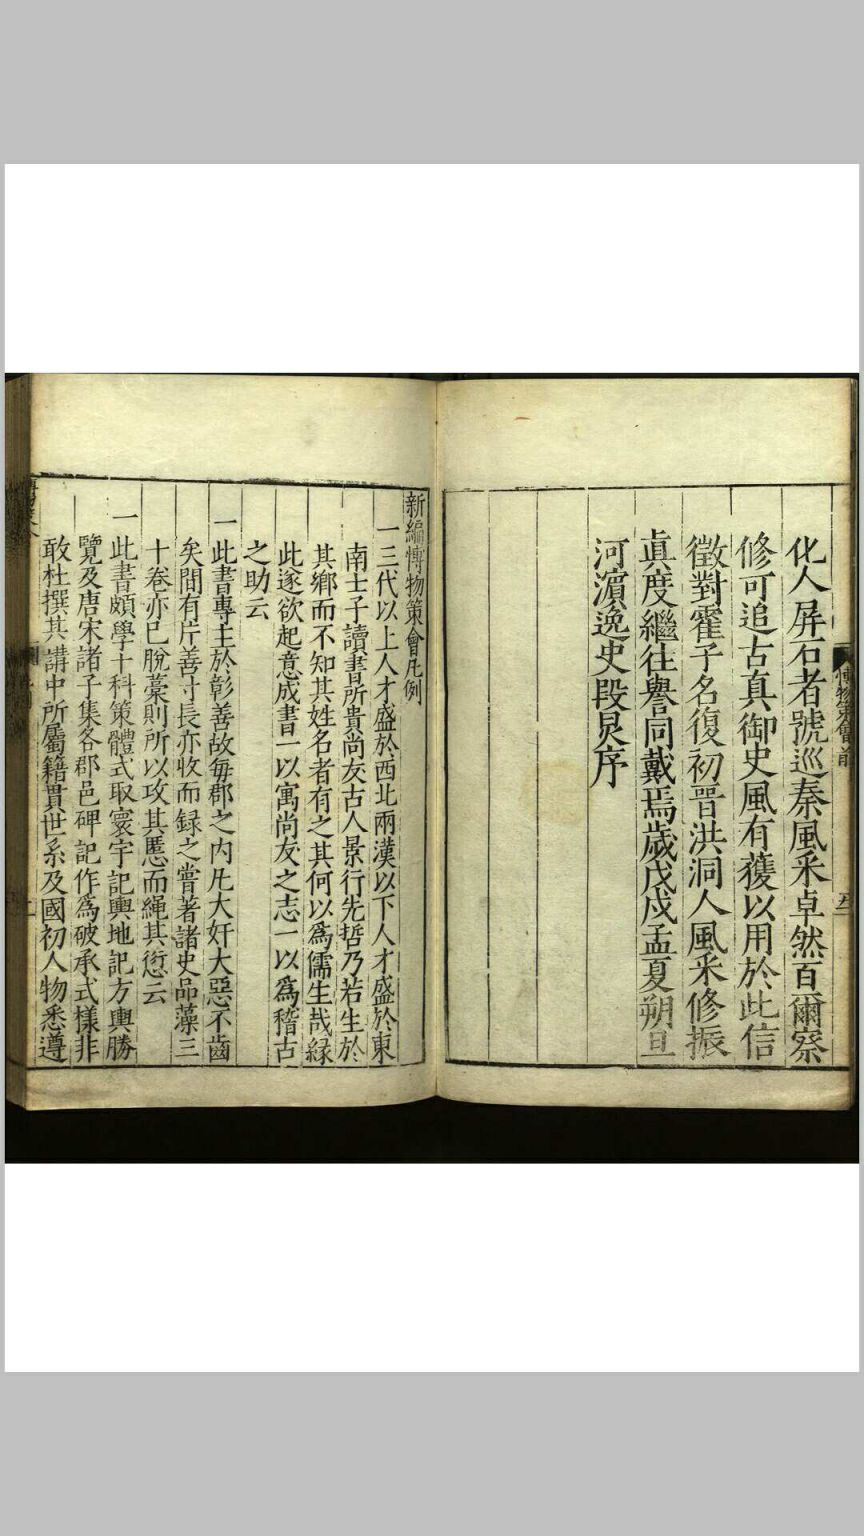 化人屏石者號巡秦風釆卓然百爾察
修可追古真御史風有蒦以用於此信
徵對霍子名復初晉洪洞人風釆修振
真度繼往譽同戴焉歲戊戍孟夏朔旦
河濵逸史段炅序
新編博物策會凡例
一三代以上人才盛於西北兩漢以下人才盛於東
南士子讀書所貴尚友古人景行先哲乃若生於
其鄉而不知其姓名者有之其何以爲儒生哉緑
此遂欲起意成書一以寓尚友之志一以爲稽古
之助云
一此書專主於彰善故每郡之内凡大奸大惡不齒
矣間有片善寸長亦收而録之嘗著諸史品藻三
十卷亦已脫藁則所以攻其慝而繩其愆云
一此書頗學十科策體式取寰宇記輿地記方輿勝
覽及唐宋諸子集各郡邑碑記作爲破承式樣非
敢杜撰其講中所屬籍貫世系及國初人物悉遵